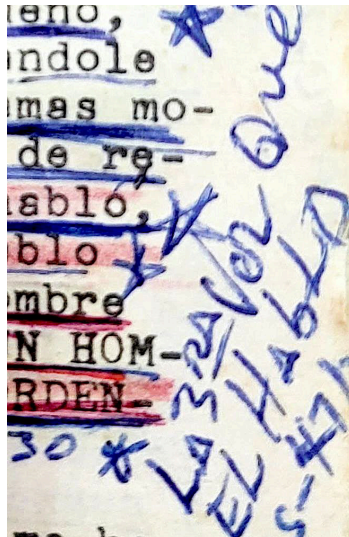 ueno,
andole
amas mo-
de re-
hablo,
ablo
ombre
N HOM-
RDEN-
30
La 3ra Vez Que
EL HABLO